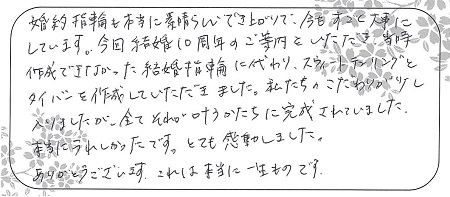 婚約指輪も本当に素晴らしいでき上がりで、今もずっと大事に
しています。今回結婚10周年のご案内をいただき、当時
作成できなかった結婚指輪に代わり、スウィートテンリングと
タイバンを作成していただきました。私たちのこだわりが少し
入りましたが、全てそれが叶うかたちに完成されていました。
本当にうれしかったです。とても感動しました。
ありがとうございます。これは本当に一生ものです。